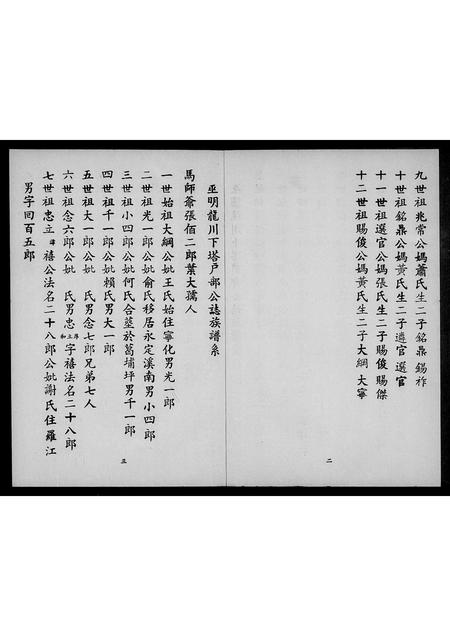 九世祖兆常公媽蕭氏生二子銘鼎 錫祚
十世祖銘鼎公媽黃氏生二子遴官 選官
十一世祖選官公媽張氏生二子賜俊 賜傑
十二世祖賜俊公媽黃氏生二子大綱 大寧
二
巫明龍川下塔戶部公誌族譜系
馬師爺張佰二郎葉大孺人
一世始祖大綱公妣王氏始住寧化男光一郎
二世祖光一郎公妣俞氏移居永定溪南男小四郎
三世祖小四郎公妣何氏合墓於葛埔坪男千一郎
四世祖千一郎公妣賴氏男大一郎
五世祖大一郎公妣 氏男念七郎兄弟七人
六世祖念六郎公妣 氏男忠立和字禧法名二十八郎
七世祖忠立 禧公法名二十八郎公妣謝氏住羅江
男字回百五郎
三